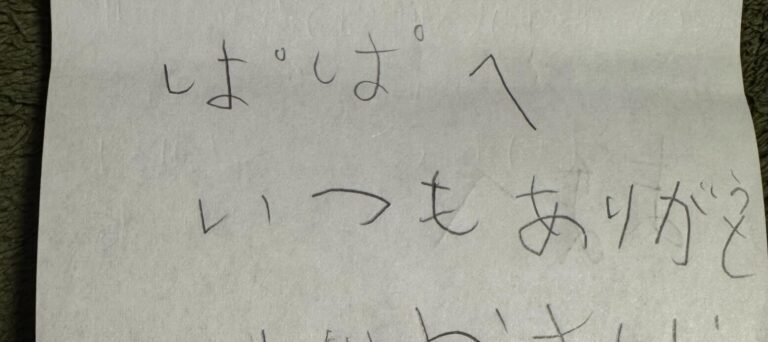 ぱぱへ
いつもありがとう